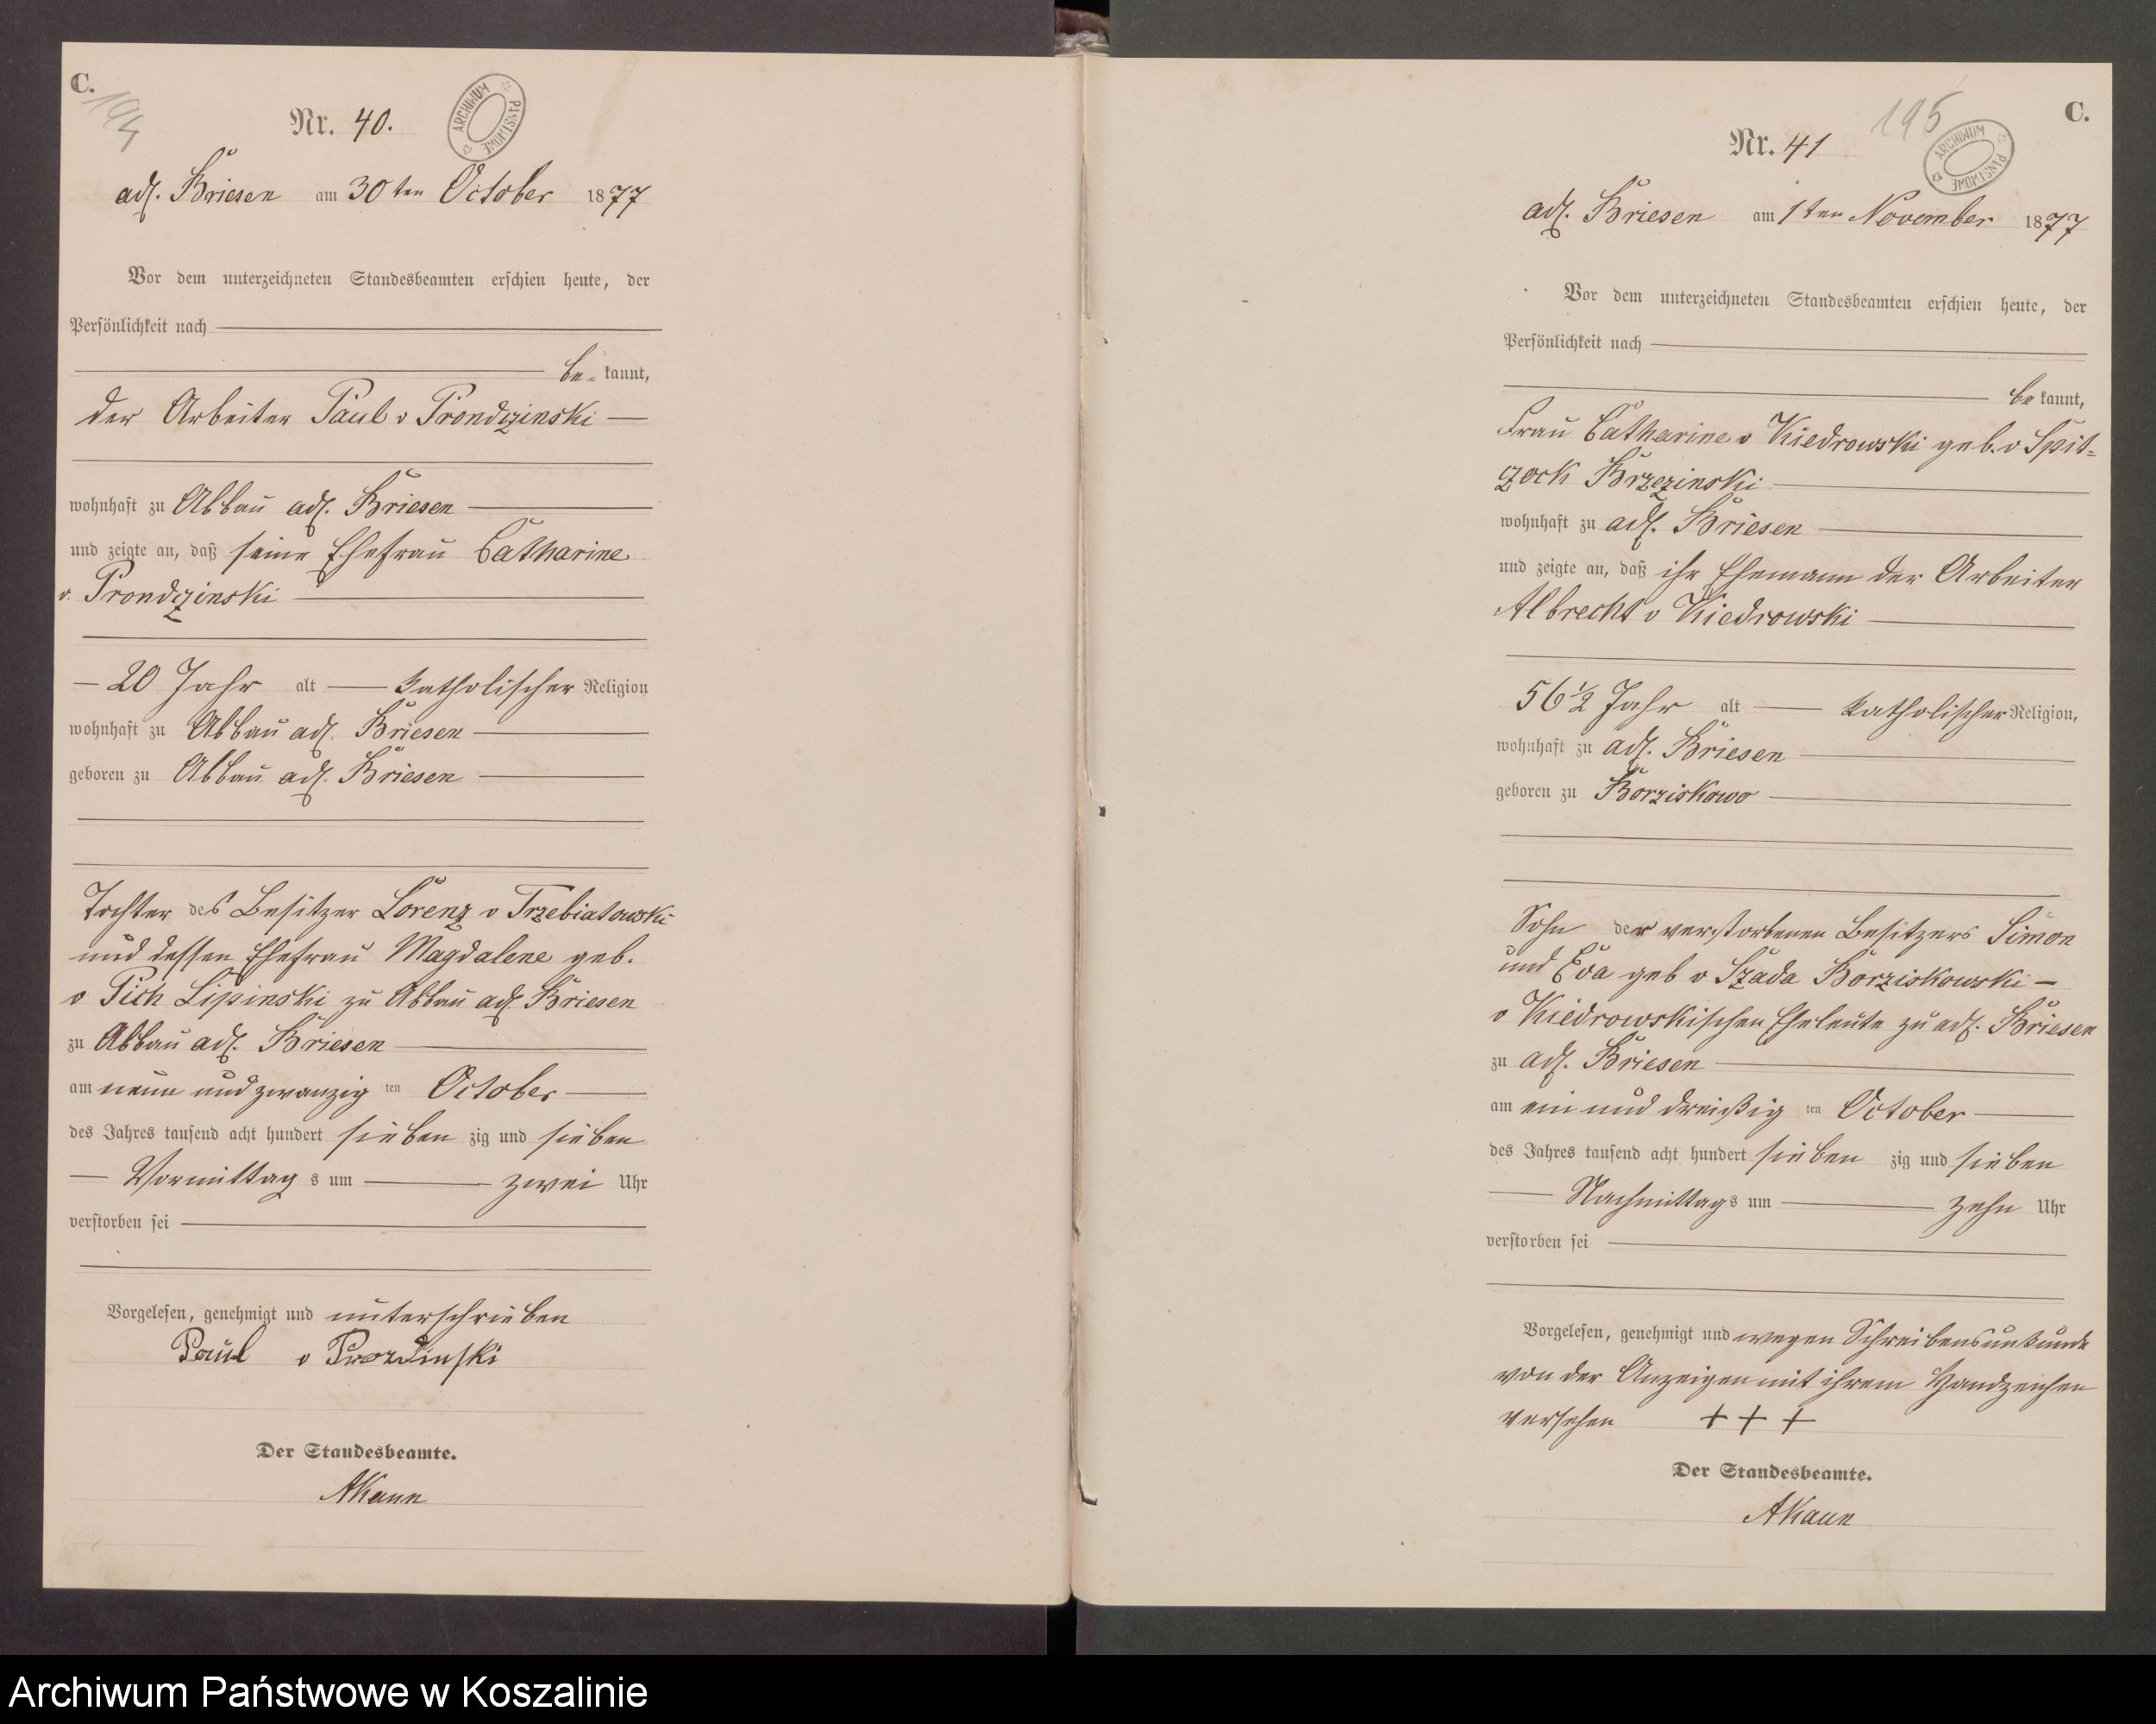 C.
194
Nr. 40.
ARCHIWUM PAŃSTWOWE
adl. Briesen am 30ten October 1877
Vor dem unterzeichneten Standesbeamten erschien heute, der
Persönlichkeit nach
be- kannt,
der Arbeiter Paul v Prondzinski
wohnhaft zu Abbau adl. Briesen
und zeigte an, daß seine Ehefrau Catharine
v. Prondzinski
20 Jahr alt katholischer Religion
wohnhaft zu Abbau adl. Briesen
geboren zu Abbau adl. Briesen
Tochter des Besitzer Lorenz v Trzebiatowski
und dessen Ehefrau Magdalene geb.
v Pich Lipinski zu Abbau adl. Briesen
zu Abbau adl. Briesen
am neun und zwanzig ten October
des Jahres tausend acht hundert sieben zig und sieben
Vormittag s um zwei Uhr
verstorben sei
Vorgelesen, genehmigt und unterschrieben
Paul v
Der Standesbeamte.
AKaun
195
C.
Nr. 41
ARCHIWUM PAŃSTWOWE
adl. Briesen am 1ten November 1877
Vor dem unterzeichneten Standesbeamten erschien heute, der
Persönlichkeit nach
be kannt,
Frau Catharine v Kiedrowski geb. v Spit=
zock Brzezinski
wohnhaft zu adl. Briesen
und zeigte an, daß ihr Ehemann der Arbeiter
Albrecht v Kiedrowski
56 1/2 Jahr alt katholischer Religion,
wohnhaft zu adl. Briesen
geboren zu Borziskowo
Sohn der verstorbenen Besitzers Simon
und Eva geb v Szada Borziskowski
v Kiedrowskischen Eheleute zu adl. Briesen
zu adl. Briesen
am ein und dreißig ten October
des Jahres tausend acht hundert sieben zig und sieben
Nachmittag s um zehn Uhr
verstorben sei
Vorgelesen, genehmigt und wegen Schreibensunkunde
von der Anzeigen mit ihrem Handzeichen
versehen + + +
Der Standesbeamte.
AKaun
Archiwum Państwowe w Koszalinie